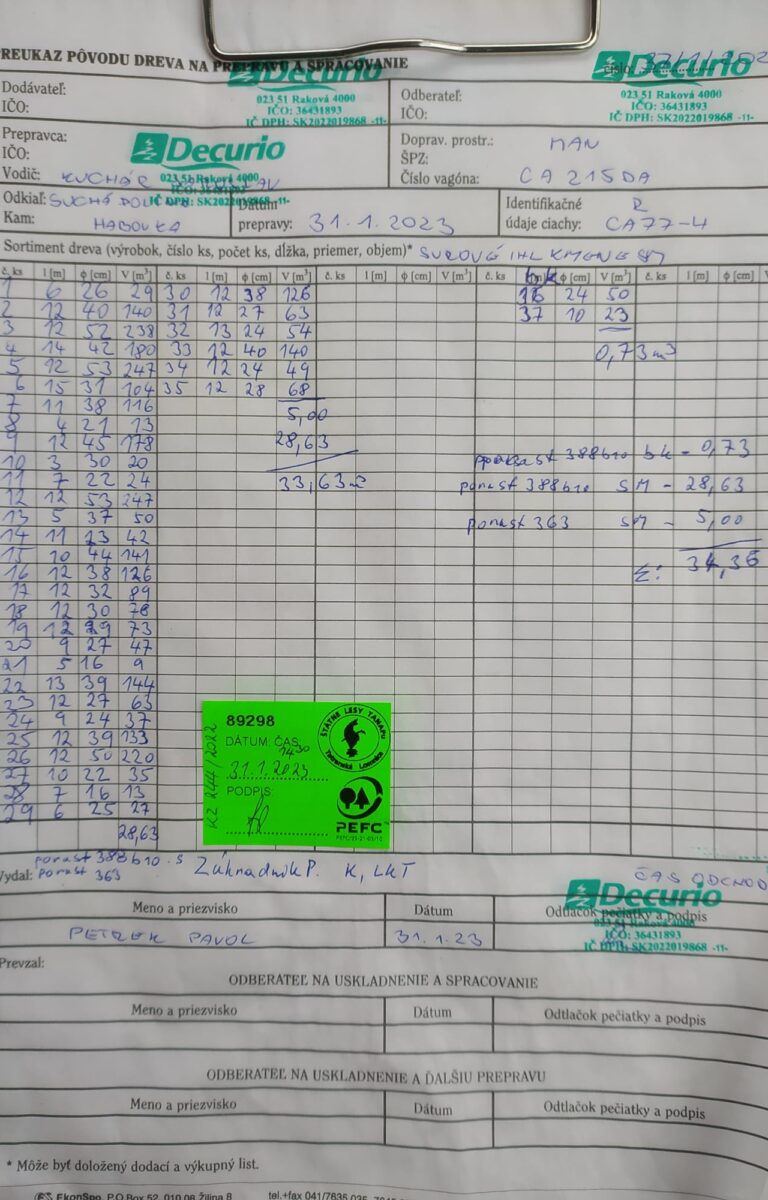 PREUKAZ PÔVODU DREVA NA PREPRAVU A SPRACOVANIE
Decurio
023 51 Raková 4000
IČO: 36431893
IČ DPH: SK2022019868 -11-
Decurio
023 51 Raková 4000
IČO: 36431893
IČ DPH: SK2022019868 -11-
Dodávateľ:
IČO:
Odberateľ:
IČO:
Prepravca:
IČO:
Vodič: KUCHÁR
Decurio
023 51 Raková 4000
Doprav. prostr.: MAN
ŠPZ:
Číslo vagóna: CA 215DA
Odkiaľ: SUCHÁ
Kam: HABOVKA
Dátum
prepravy: 31.1.2023
Identifikačné R
údaje ciachy: CA77-4
Sortiment dreva (výrobok, číslo ks, počet ks, dĺžka, priemer, objem)* SUROVÉ IHL KMENE
č. ks l [m] ϕ [cm] V [m³] č. ks l [m] ϕ [cm] V [m³] č. ks l [m] ϕ [cm] V [m³] č. ks bk ϕ [cm] V [m³] č. ks l [m] ϕ [cm] V [m³]
1 6 26 29 30 12 38 126 24 50
2 12 40 140 31 12 27 63 37 10 23
3 12 52 238 32 13 24 54
4 14 42 180 33 12 40 140 0,73 m³
5 12 53 247 34 12 24 49
6 15 31 104 35 12 28 68
7 11 38 116 5,00
8 4 21 13
9 12 45 178 28,63
10 3 30 20 porast 388b10 bk - 0,73
11 7 22 24 33,63 m³ porast 388b10 SM - 28,63
12 12 53 247
13 5 37 50 porast 363 SM - 5,00
14 11 23 42
15 10 44 141 Σ: 34,36
16 12 38 126
17 12 32 89
18 12 30 78
19 12 29 73
20 9 27 47
21 5 16 9
22 13 39 144
23 12 27 63
24 9 24 37
25 12 39 133
26 12 50 220
27 10 22 35
28 7 16 13
29 6 25 27
28,63
KZ 244/2022
89298
DÁTUM: ČAS:
14 30
31.1.2023
PODPIS:
ŠTÁTNE LESY TANAPu
Tatranská Lomnica
PEFC
porast 388b10
Vydal: porast 363
Záhradník P. K, LKT
ČAS ODCHOD
Decurio
023 51 Raková 4000
IČO: 36431893
IČ DPH: SK2022019868 -11-
Meno a priezvisko Dátum Odtlačok pečiatky a podpis
PETREK PAVOL 31.1.23
Prevzal:
ODBERATEĽ NA USKLADNENIE A SPRACOVANIE
Meno a priezvisko Dátum Odtlačok pečiatky a podpis
ODBERATEĽ NA USKLADNENIE A ĎALŠIU PREPRAVU
Meno a priezvisko Dátum Odtlačok pečiatky a podpis
* Môže byť doložený dodací a výkupný list.
EkonSpo, P.O.Box 52, 010 08 Žilina 8 tel.+fax 041/7635 035